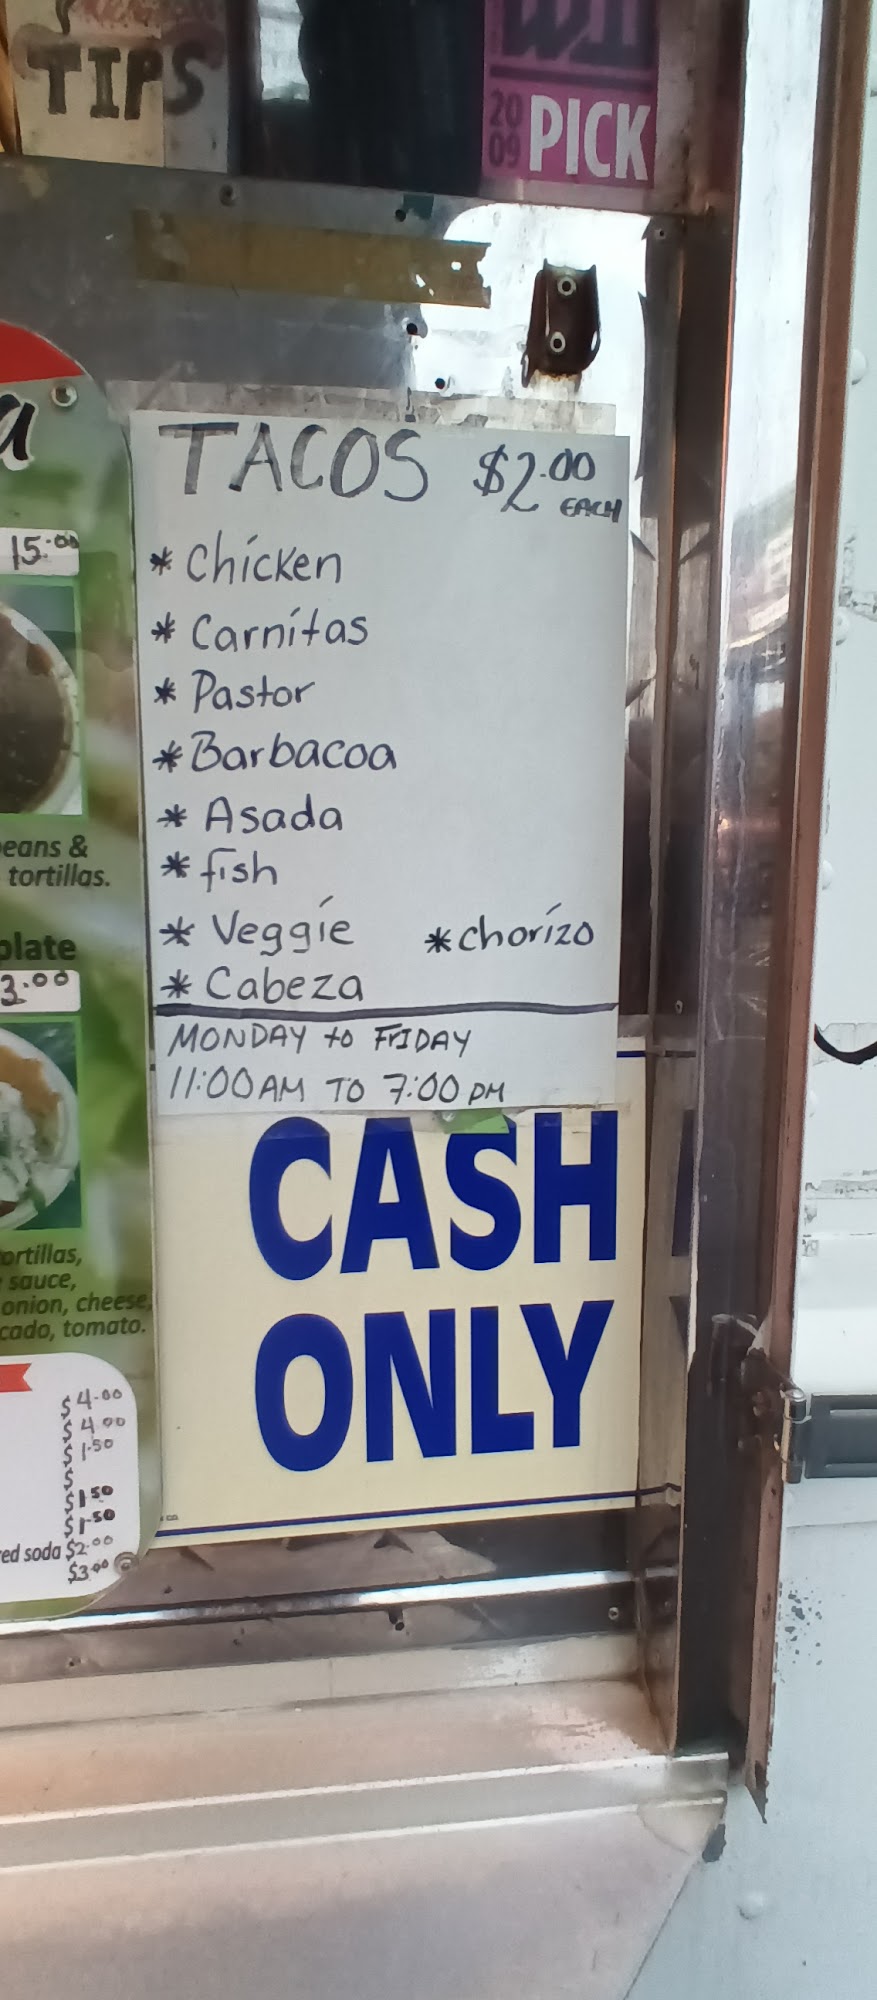 TIPS
20
09
PICK
a
TACOS $2.00
EACH
15.00
* Chicken
* Carnitas
* Pastor
* Barbacoa
* Asada
* fish
* Veggie * chorizo
* Cabeza
MONDAY to FRIDAY
11:00 AM TO 7:00 PM
eans &
tortillas.
plate
3.00
ortillas,
sauce,
onion, cheese,
cado, tomato.
CASH
ONLY
$4.00
$4.00
$1.50
$
$1.50
$1.50
red soda $2.00
$3.00